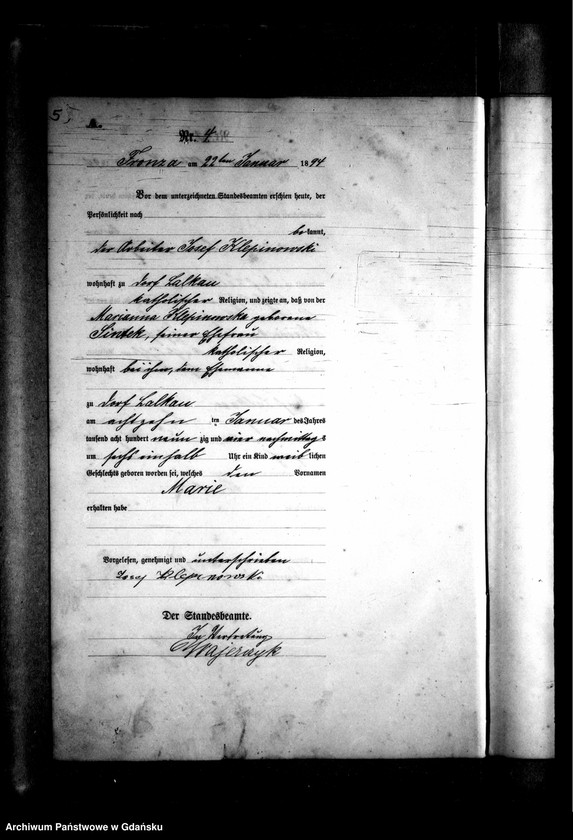 5
Nr. 4
Fronza am 22ten Januar 1894
Vor dem unterzeichneten Standesbeamten erschien heute, der
Persönlichkeit nach
bekannt,
der Arbeiter Josef Klepinowski
wohnhaft zu Dorf Lalkau
katholischer Religion, und zeigte an, daß von der
Marianna Klepinowska geborene
Sintek, seiner Ehefrau
katholischer Religion,
wohnhaft bei ihm, dem Ehemanne
zu Dorf Lalkau
am achtzehn ten Januar des Jahres
tausend acht hundert neun zig und vier nachmittags
um sechs einhalb Uhr ein Kind weib lichen
Geschlechts geboren worden sei, welches den Vornamen
Marie
erhalten habe
Vorgelesen, genehmigt und unterschrieben
Josef Klepinowski
Der Standesbeamte.
In Vertretung
Majerzyk
Archiwum Państwowe w Gdańsku